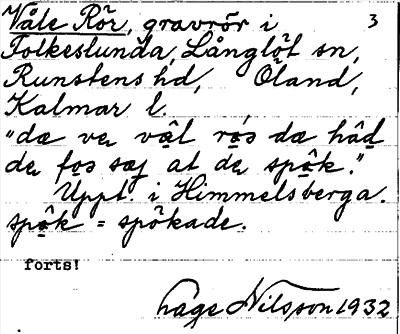 Våle Rör, gravrör i 3
Folkeslunda, Långlöt sn,
Runstens hd, Öland,
Kalmar l.
"dæ ve vâl rǿs dæ hâd
de fos sæj at de spôk."
Uppt. i Himmelsberga.
spôk = spökade.
forts!
hage Nilsson 1932